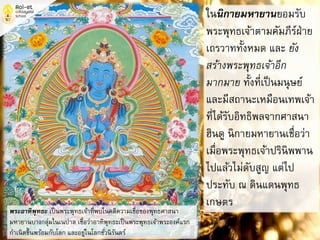 Roi-et
wittayalai
school
ในนิกายมหายานยอมรับ
พระพุทธเจ้าตามคัมภีร์ฝ่าย
เถรวาททั้งหมด และ ยัง
สร้างพระพุทธเจ้าอีก
มากมาย ทั้งที่เป็นมนุษย์
และมีสถานะเหมือนเทพเจ้า
ที่ได้รับอิทธิพลจากศาสนา
ฮินดู นิกายมหายานเชื่อว่า
เมื่อพระพุทธเจ้าปรินิพพาน
ไปแล้วไม่ดับสูญ แต่ไป
ประทับ ณ ดินแดนพุทธ
เกษตร
พระอาทิพุทธะ เป็นพระพุทธเจ้าที่พบในคติความเชื่อของพุทธศาสนา
มหายานบางกลุ่มในเนปาล เชื่อว่าอาทิพุทธะเป็นพระพุทธเจ้าพระองค์แรก
กำเนิดขึ้นพร้อมกับโลก และอยู่ในโลกชั่วนิรันดร์